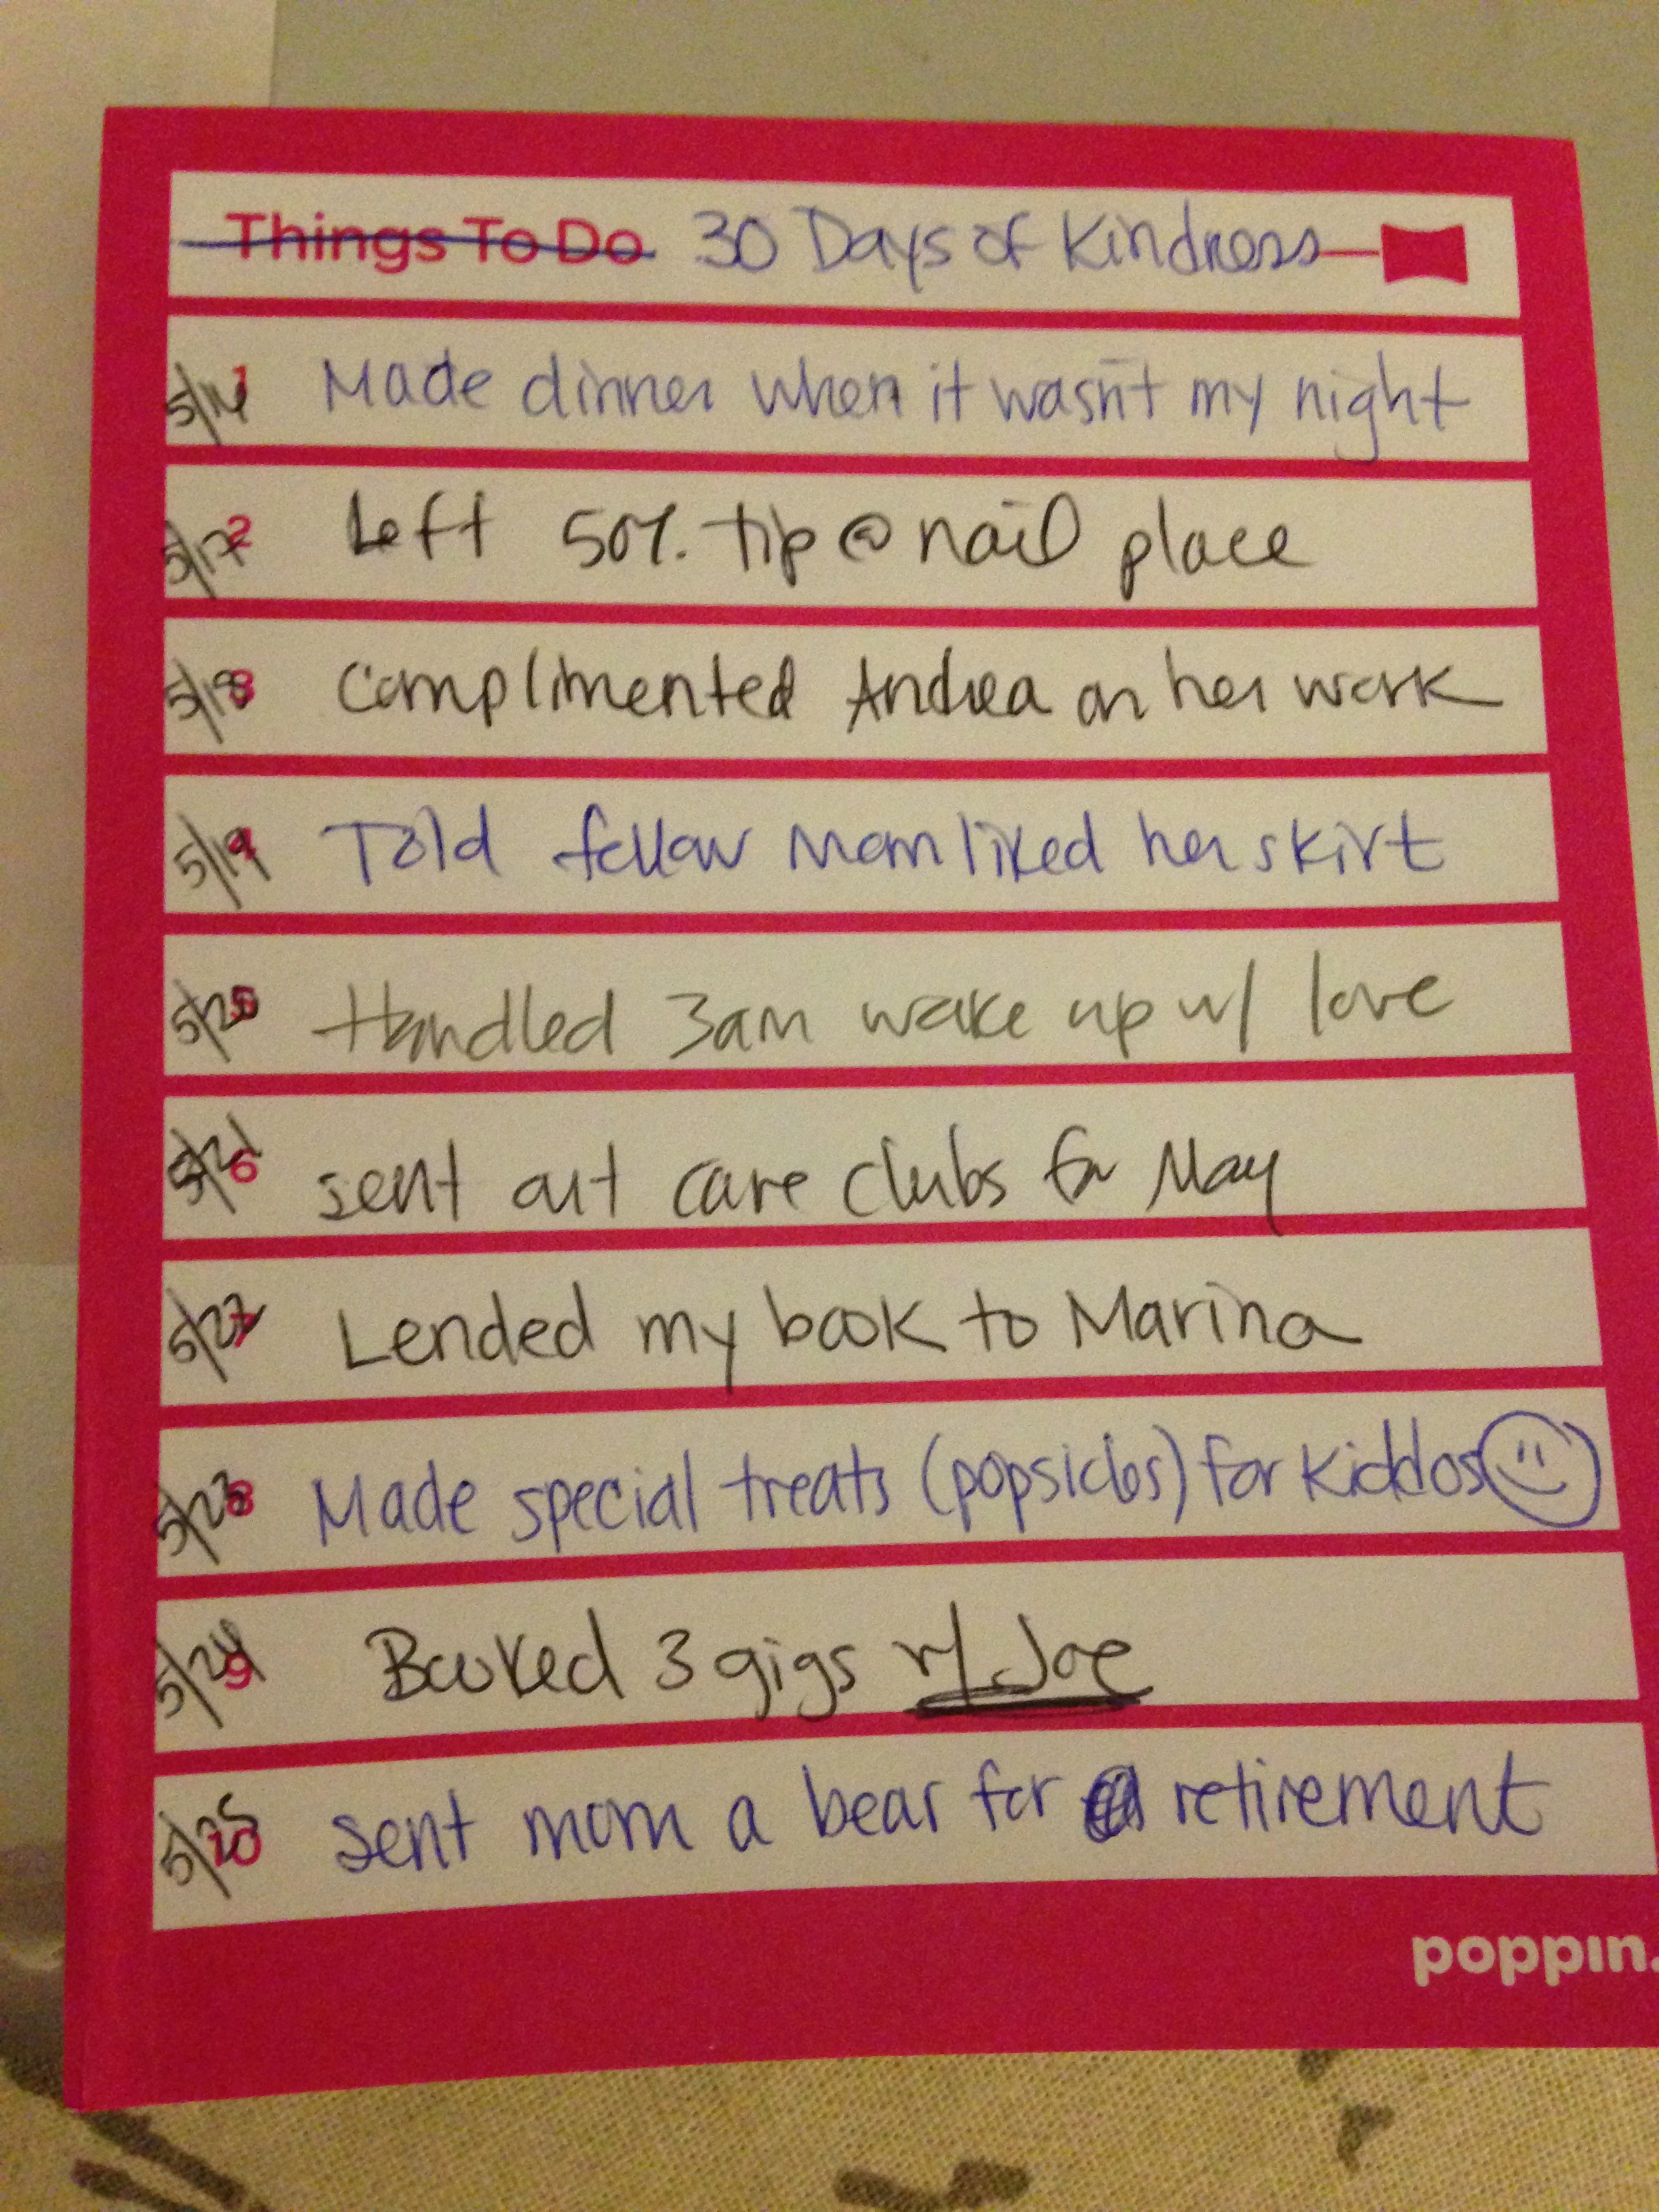 Things To Do 30 Days of Kindness
5/16 1 Made dinner when it wasn't my night
5/17 2 Left 50% tip @ nail place
5/18 3 Complimented Andrea on her work
5/19 4 Told fellow Mom liked her skirt
5/20 5 Handled 3am wake up w/ love
5/21 6 sent out care clubs for May
5/22 7 Lended my book to Marina
5/23 8 Made special treats (popsicles) for Kiddos
5/24 9 Booked 3 gigs w/ Joe
5/25 10 sent mom a bear for retirement
poppin.